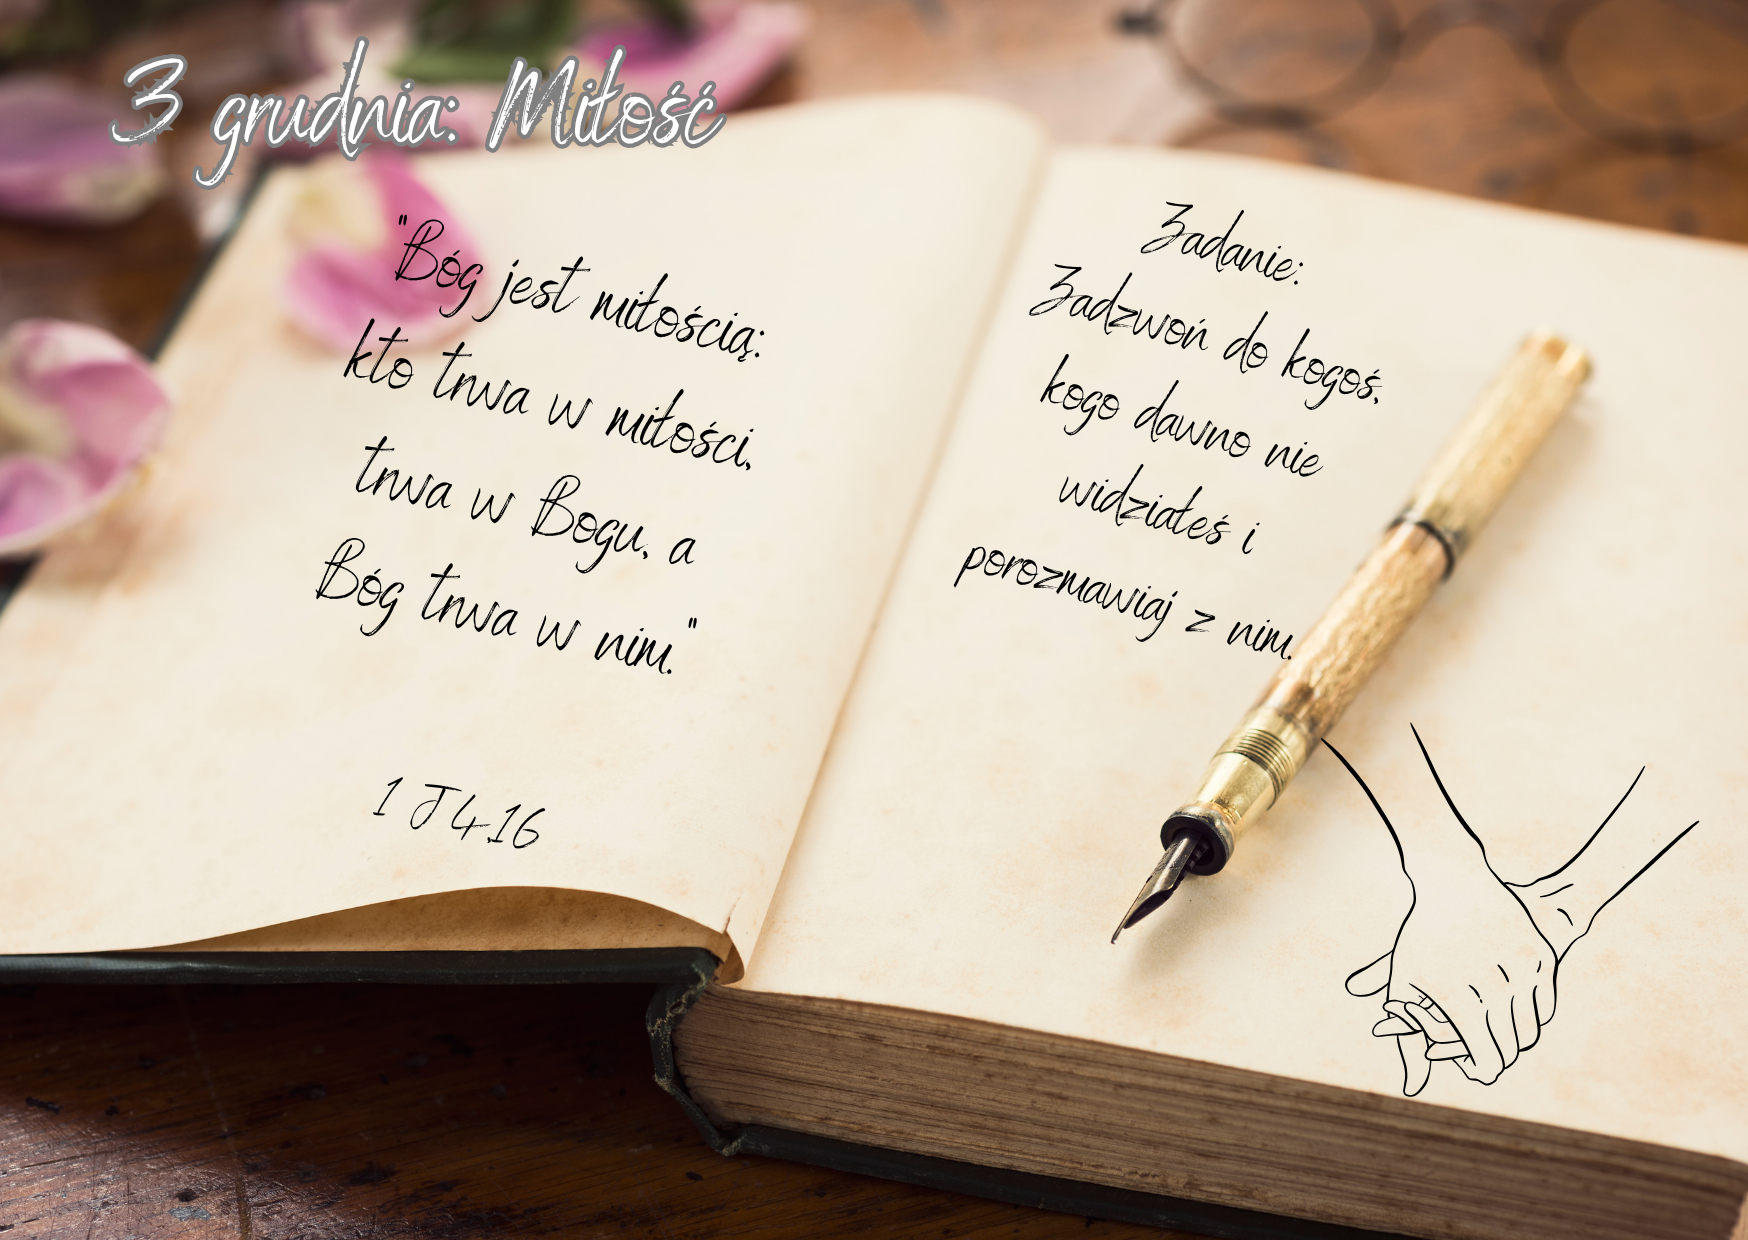 3 grudnia: Miłość
"Bóg jest miłością:
kto trwa w miłości,
trwa w Bogu, a
Bóg trwa w nim."
1 J 4,16
Zadanie:
Zadzwoń do kogoś,
kogo dawno nie
widziałeś i
porozmawiaj z nim.